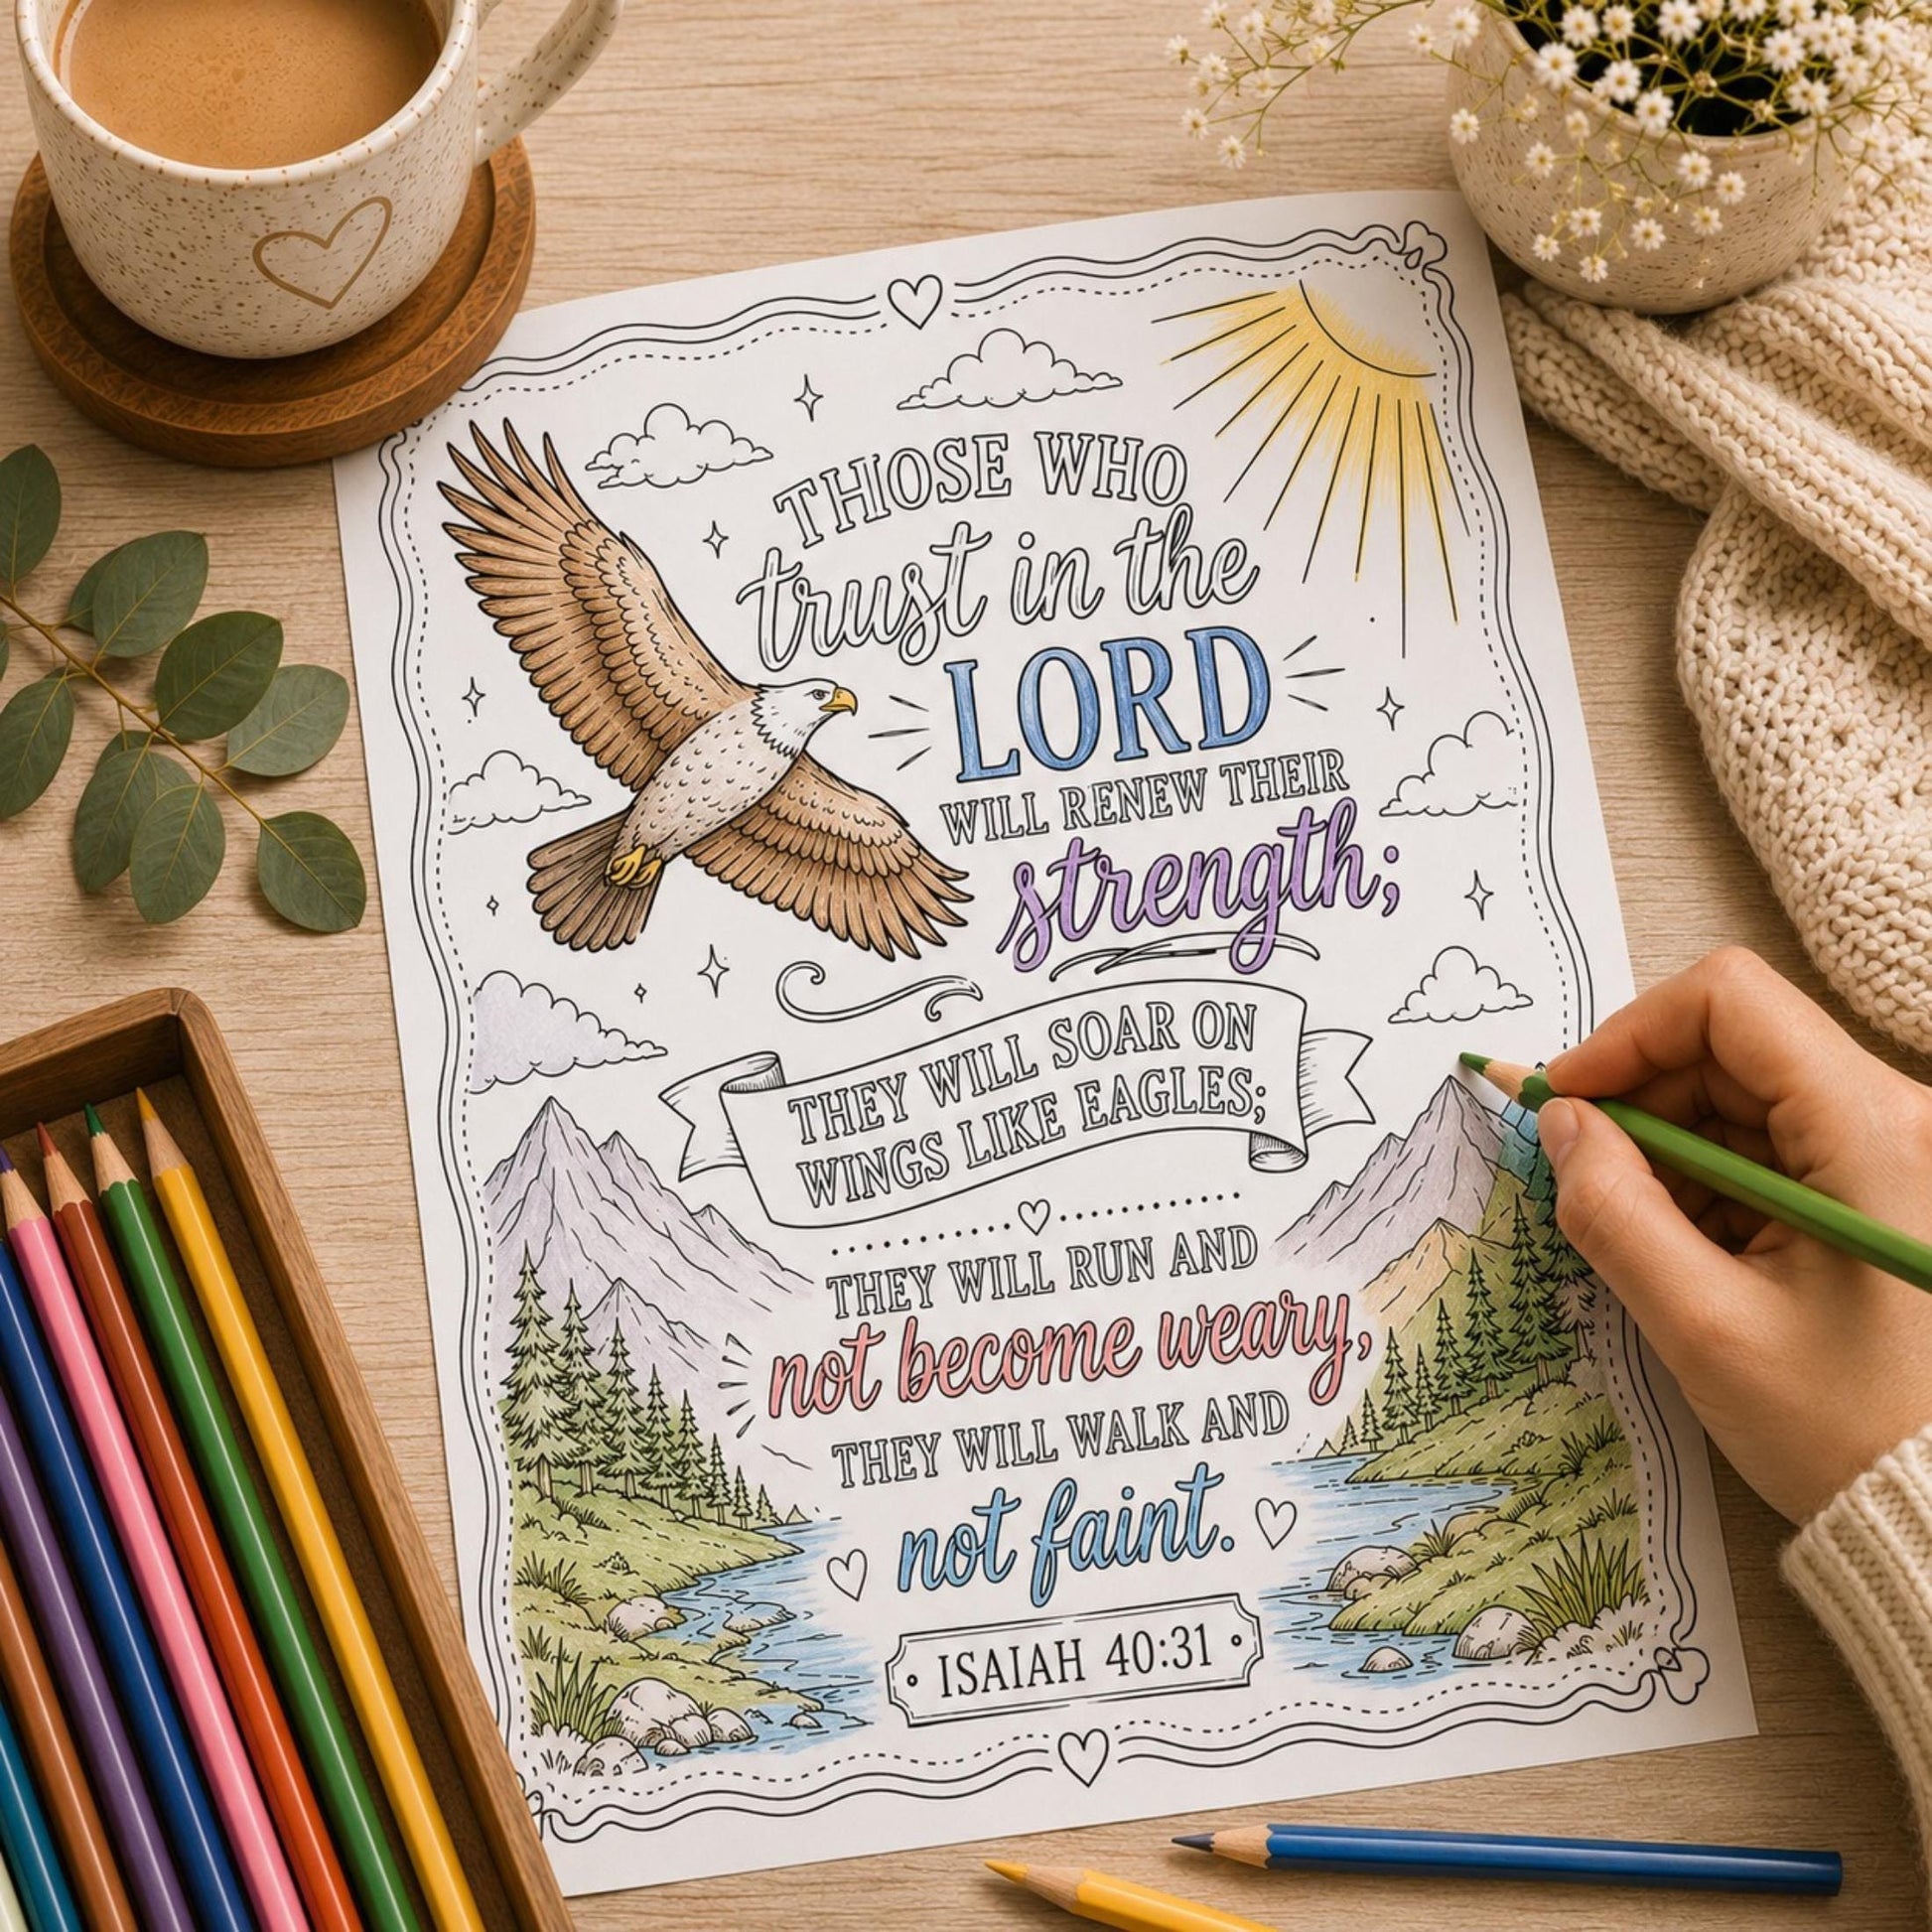 THOSE WHO
trust in the
LORD
WILL RENEW THEIR
strength;
THEY WILL SOAR ON
WINGS LIKE EAGLES;
THEY WILL RUN AND
not become weary,
THEY WILL WALK AND
not faint.
ISAIAH 40:31